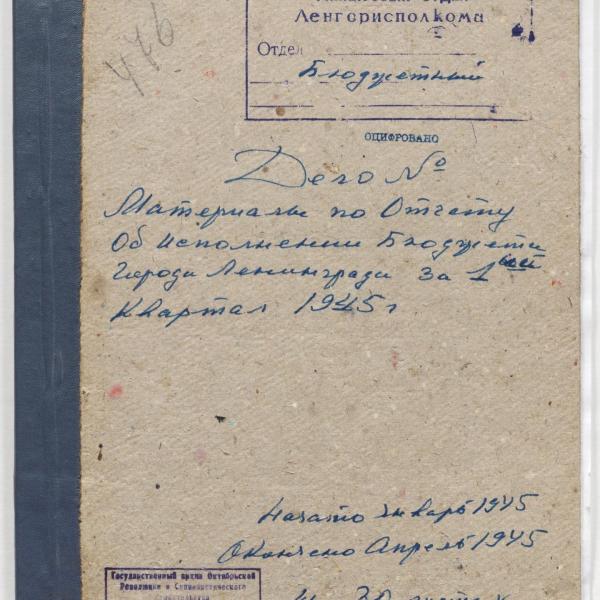 446
Ленгорисполкома
Отдел
Бюджетный
ОЦИФРОВАНО
Дело №
Материалы по Отчету
Об исполнении Бюджета
города Ленинграда за 1 ый
квартал 1945 г
Начато январь 1945
Окончено Апрель 1945
Государственный архив Октябрьской
Революции и Социалистического
30